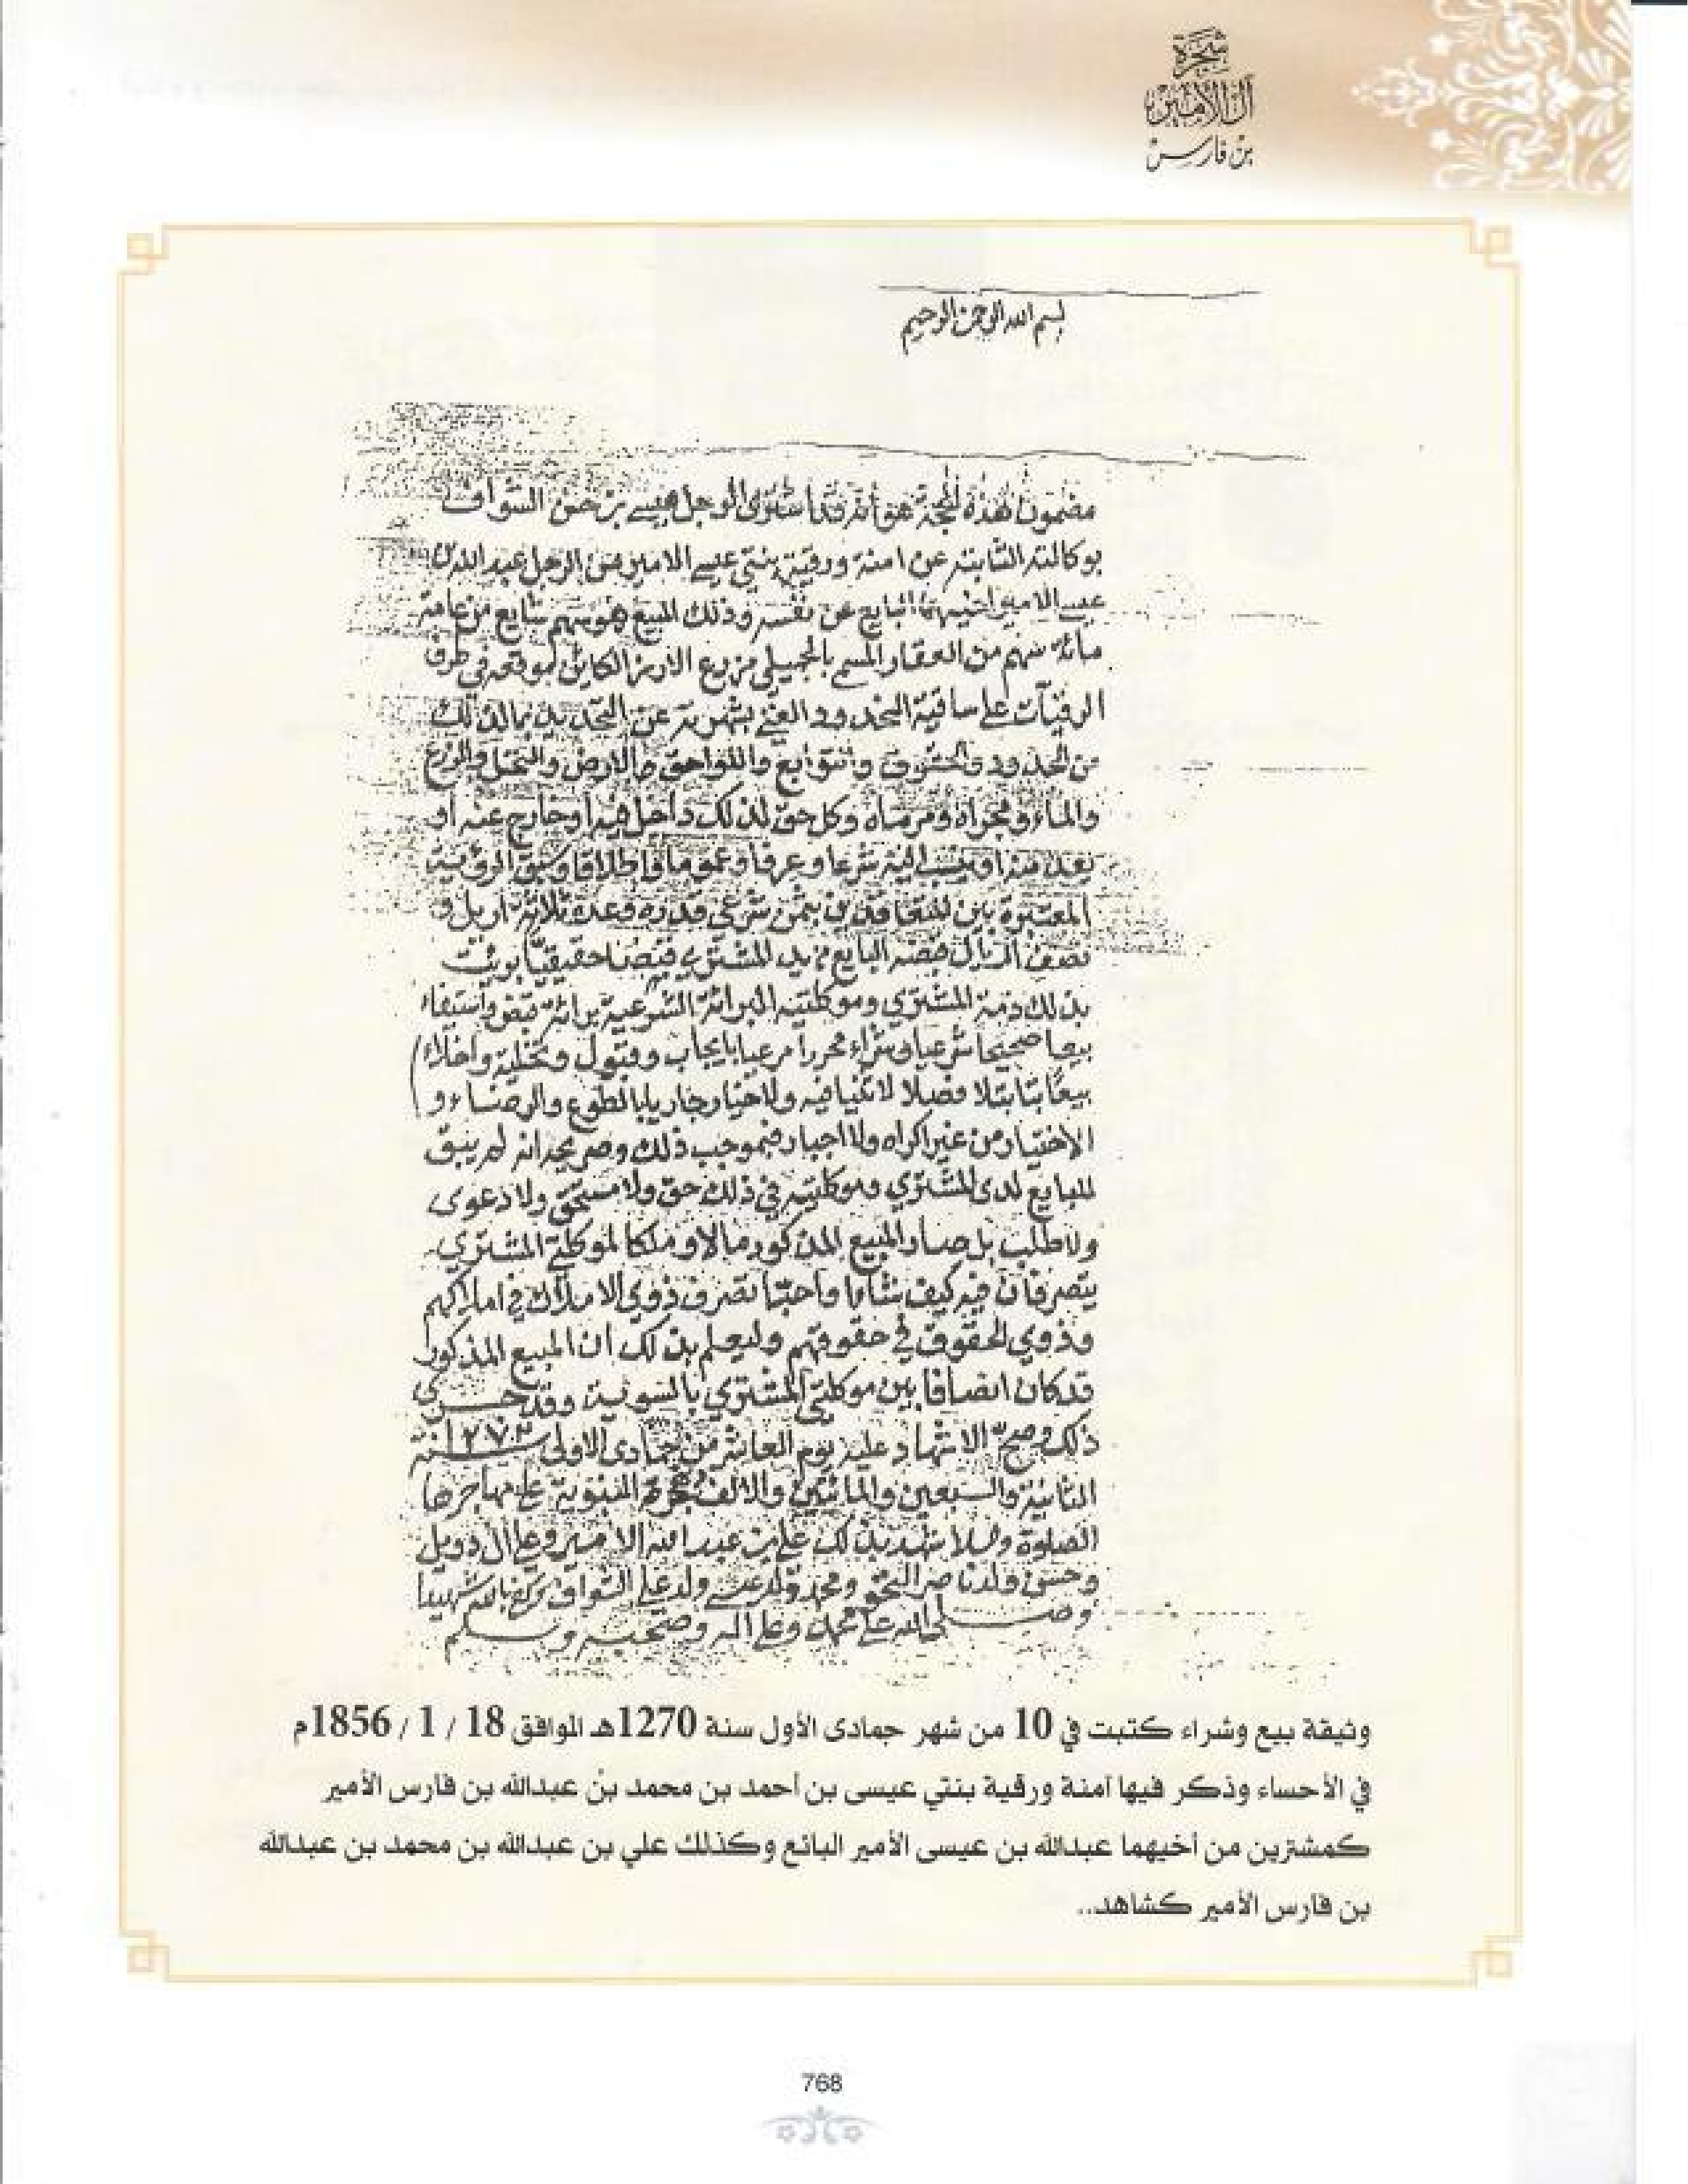 شجرة
آل الأمير
بن فارس
بسم الله الرحمن الرحيم
مضمون هذه الحجة هو أنه قد اشترى الرجل عيسى بن حسن الشواف
بوكالته الثابتة عن امنة ورقية بنتي عيسى الامير من الرجل عبد الله بن
عيسى الامير اخيهما البايع عن نفسه وذلك المبيع هو سهم شايع من عامة
مائة سهم من العقار المسمى بالجميلي مزرع الارز الكاين بموقعه في طرف
الرقيات على ساقية الخدود الغني بشهرته عن التحديد بما لذلك
من الحدود والحقوق والتوابع واللواحق والارض والنخل والزرع
والماء ومجراه ومرماه وكل حق لذلك داخل فيه أو خارج عنه أو
يعد منه او ينسب اليه شرعا وعرفا وعموما واطلاقا وسبق الرؤية
المعتبرة بين المتعاقدين بثمن شرعي قدره وعده ثلاثة اريل و
نصف الريال قبضه البايع من يد المشتري قبضا حقيقيا برئت
بذلك ذمة المشتري وموكلتيه البرائة الشرعية برائة قبض واستيفاء
بيعا صحيحا شرعيا وشراء محررا مرعيا بايجاب وقبول وتخلية واخلاء
بيعا بتا بتلا فصلا لا ثنيا فيه ولا خيار جار يلبا لطوع والرضاء و
الاختيار من غير اكراه ولا اجبار فبموجب ذلك وصريحه انه لم يبق
للبايع لدى المشتري وموكلتيه في ذلك حق ولا مستحق ولا دعوى
ولا طلب بل صار المبيع المذكور مالا وملكا لموكلتي المشتري
يتصرفان فيه كيف شاءا واحبا تصرف ذوي الاملاك في املاكهم
وذوي الحقوق في حقوقهم وليعلم بذلك ان المبيع المذكور
قد كان انصافا بين موكلتي المشتري بالسوية وقد حسن
ذلك وصح الاشهاد عليه يوم العاشر من جمادى الاولى سنة
الثانية والسبعين والمائتين والالف هجرة النبوية على مهاجرها
الصلوة والسلام شهد بذلك علي بن عبد الله الامير وعلي ال دويل
وحسن ولد ناصر ومحمد ولد عيسى ولد علي الشواف وكفى بالله شهيدا
وصلى الله على محمد وعلى اله وصحبه وسلم
وثيقة بيع وشراء كتبت في 10 من شهر جمادى الأول سنة 1270هـ الموافق 18 / 1 / 1856م
في الأحساء وذكر فيها آمنة ورقية بنتي عيسى بن أحمد بن محمد بن عبدالله بن فارس الأمير
كمشترين من أخيهما عبدالله بن عيسى الأمير البائع وكذلك علي بن عبدالله بن محمد بن عبدالله
بن فارس الأمير كشاهد..
768